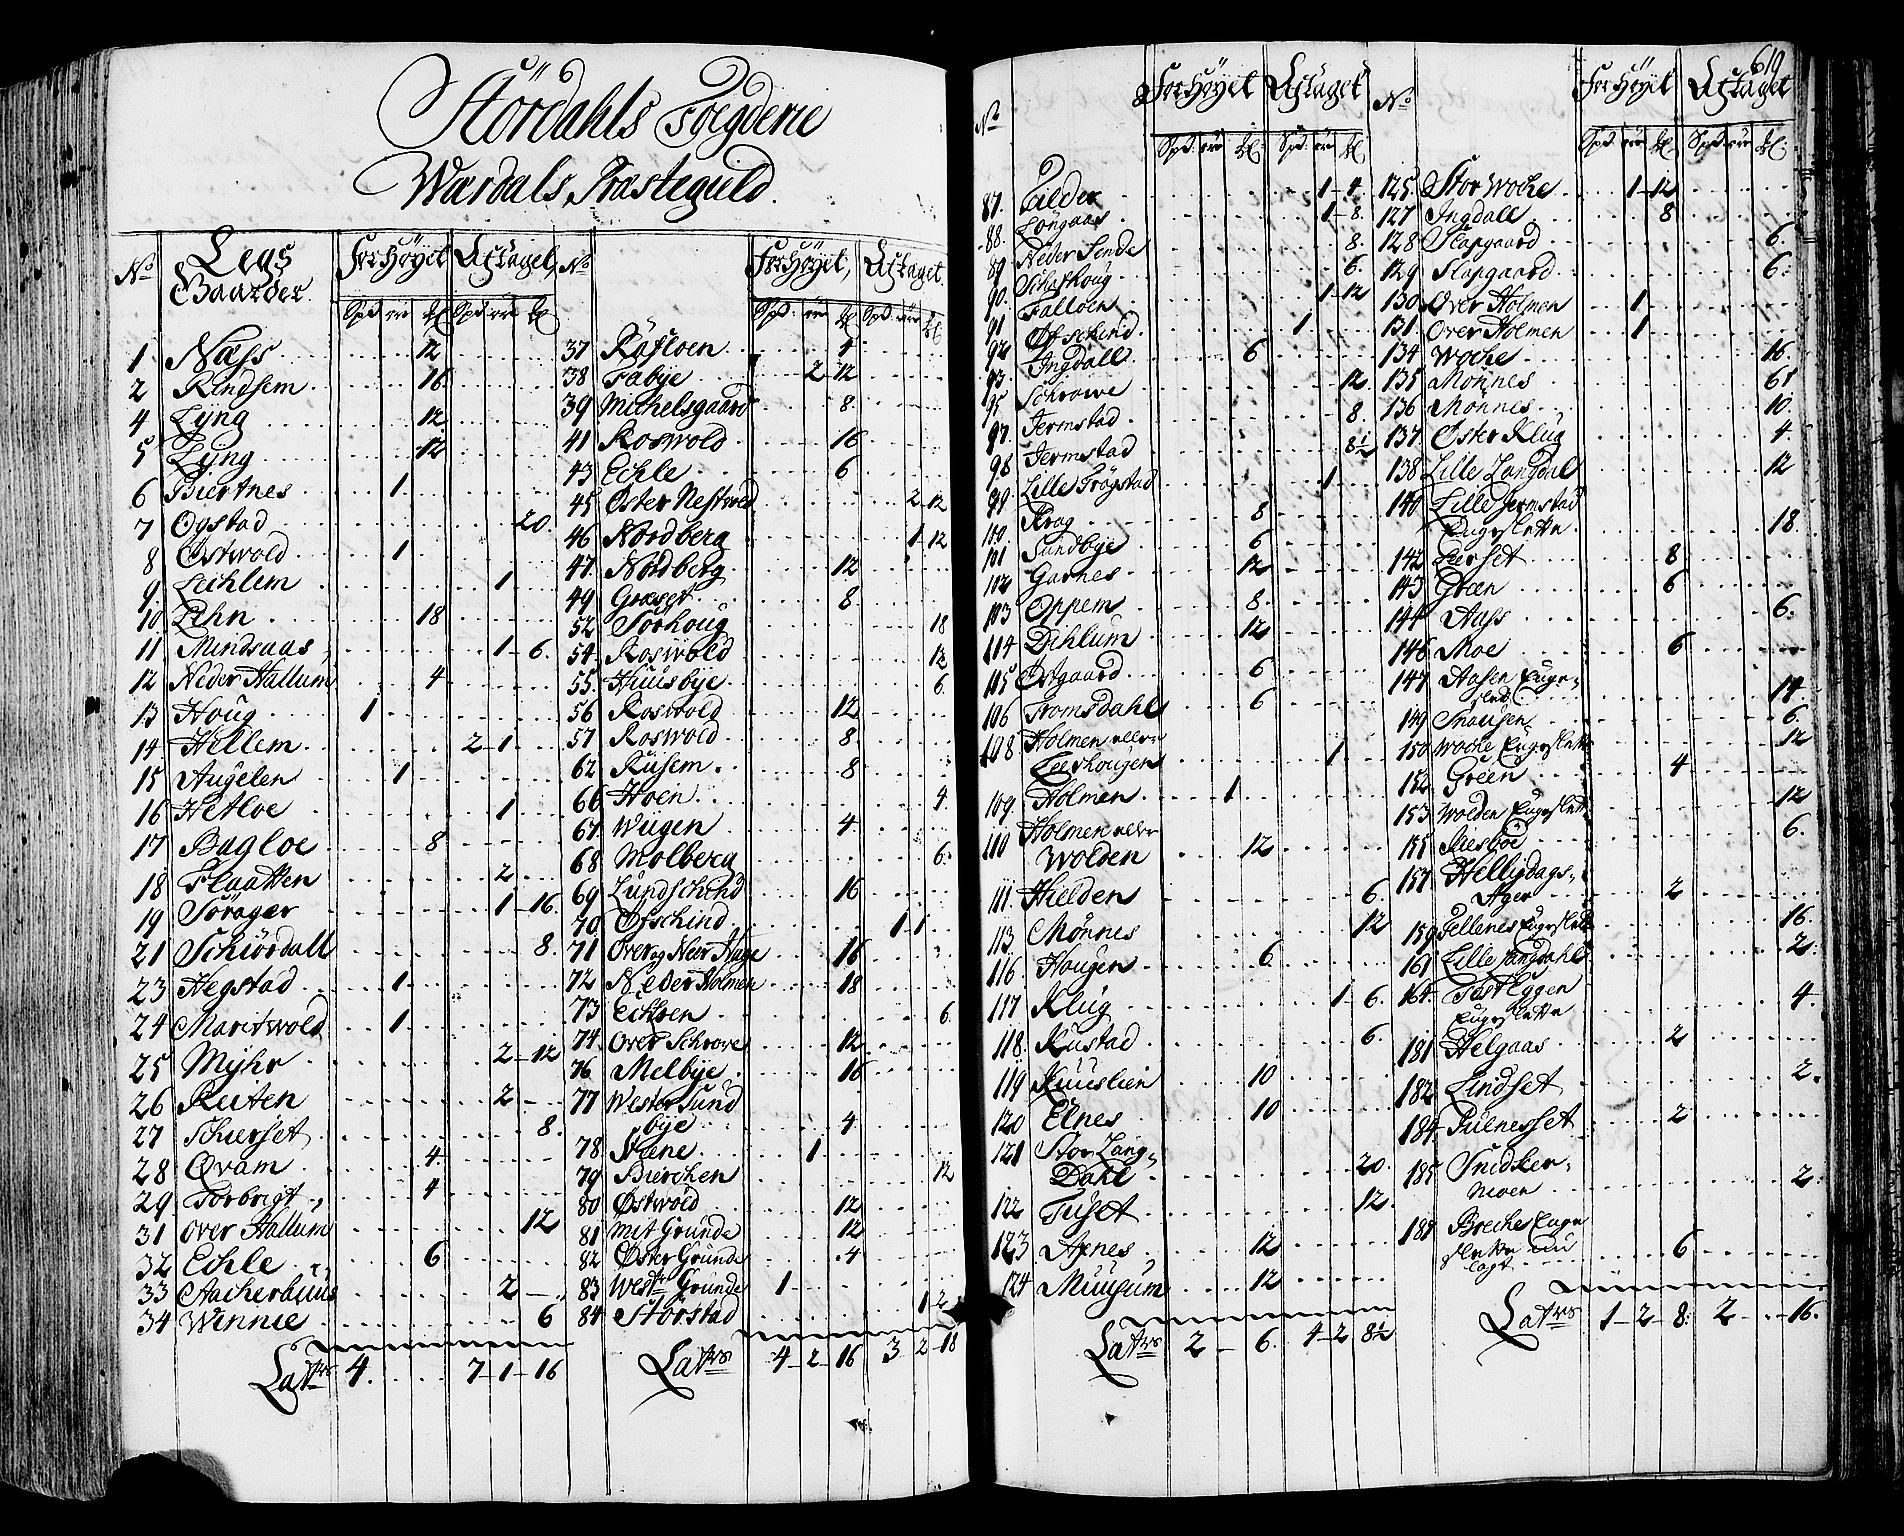 Stördahls Fogderie
Wærdals Præstegield.
No Legs Gaarder Forhöyet Aftaget
Spd ore
1 Næss 12
2 Rindsem 16
4 Lÿng 12
5 Lÿng 12
6 Biertnes 1
7 Ogstad 20.
8 Østwold 1
9 Leihlem 1
10 Lehn 18
11 Mindsaas 1-6.
12 Neder Hallum 4
13 Houg 1
14 Hellem 2-1
15 Augelen 1
16 Hetloe 1
17 Bagloe 8
18 Flaatten 2
19 Sörager 1-16.
21 Schiördall 8.
23 Hegstad 1
24 Maritwold 1
25 Mÿhr 2-12
26 Reiten 2
27 Schierset 8.
28 Qvam 4.
29 Torbrigt 4
31 Over Hallum 12
32 Echle 6
33 Aacherhuus 2
34 Winnie 6
Latrs 4. 7-1-16
No Forhöyet, Aftaget.
37 Röesloen 4
38 Fabÿe 2 12
39 Michelsgaard 8.
41 Roswold 16
43 Echle 6
45 Öster Nestwold 2 12
46 Nordberg 1-12
47 Nordberg 12
49 Græset 8.
52 Sörhoug 18
54 Roswold 12
55 Huusbÿe 6
56 Roswold 12
57 Roswold 8.
62 Rusem 8
66 Hoen 4.
67 Wiigen 4.
68 Molberg 6.
69 Lundschind 16
70 Ofschind 1 1
71 Over og Neer Hage 16
72 Neder Holmen 18
73 Echren 6
74 Over Schrove 12
76 Melbÿe 16
77 Wester Sund
bÿe 4
78 Stene 1
79 Bierchen 12
80 Østwold 12
81 Mit Grunde 12
82 Öster Grunde 4
83 Westr Grunde 1
84 Storstad 1 2
Latrs 4-2-16 3 2-18
619
No Forhöyet Aftaget
87. Tilder 1-4.
88. Longaas 1-8.
89 Neder Sende 8.
90. Schafhoug 6.
91 Falloen 1-12
92 Ofschind 1
93. Ingdall 6
95 Schrowe 12
97. Jermstad 8.
98. Jermstad 8½
99. Lille Trögstad 1
100. Krag 8
101 Sundbÿe 6
102 Garnes 12
103 Oppem 8.
114 Dihlum 12
105 Østgaard 6
106 Tromsdahl 6
108 Holmen eller
Leershougen 1
109. Holmen 1
110 Holmen eller
Wolden 12
111. Hielden 6.
113. Mönnes 12
116. Haugen 6
117 Klug 1-6.
118. Kustad 6.
119 Kuuslien 10
120 Elnes 10
121 Stor Lang-
Dahl 20.
122 Tuset 12.
123 Axnes 12
124 Muusum 12
Latrs 2-6. 4-2 8½
No Forhöyet Aftaget
125 Stor Woche 1-12
127 Ingdall 8
128 Slapgaard 6.
129 Slapgaard 6.
130 Over Holmen 1
131. Over Holmen 1
134 Woche 16
135 Mönnes 6
136 Mönnes 10.
137. Öster Klug 4.
138 Lille Langdal 12
140 Lille Jermstad
Engeslette 18
142 Leerset 8
143 Green 6
144 Aass 6.
146 Moe 6
147 Aasen Enge-
slet 14
149 Snaugen 6.
150 Woche Engeslette 12
152 Green 4
153 Wolden Engeslette 12
155 Riesböe 6.
157 Helligdags-
Ager 2
159 Tellenes Engeslette 16
161 Lille Langdahl 2.
164. Fast Eggen
Engeslette 4
181 Helgaas 2
182 Lindset 2.
184 Julnesset 2
185 Snidker-
moen 2.
187 Breche Enge
slette 6
Latrs 1-2-8. 2-16.